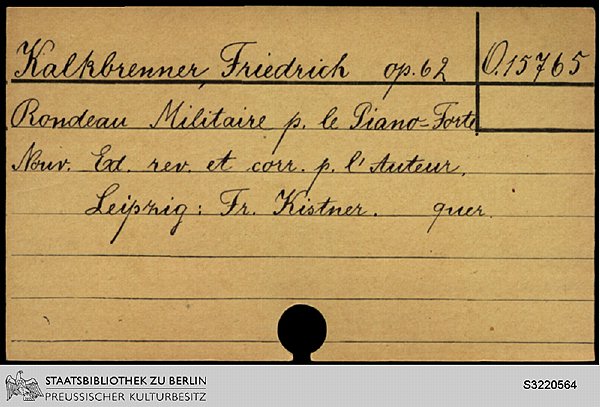 Kalkbrenner, Friedrich op. 62 O. 15765
Rondeau Militaire p. le Piano-Forte
Nouv. Ed. rev. et corr. p. l'Auteur.
Leipzig: Fr. Kistner. quer.
STAATSBIBLIOTHEK ZU BERLIN
PREUSSISCHER KULTURBESITZ
S3220564